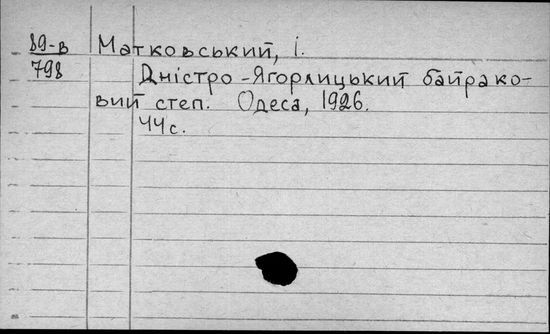 89-в Матковський, І.
798 Дністро-Ягорлицький байрако-
вий степ. Одеса, 1926.
44 с.